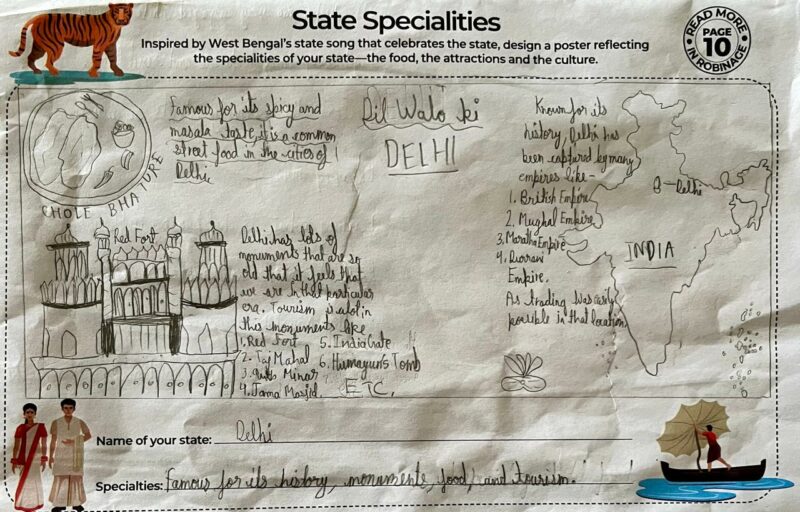 State Specialities
Inspired by West Bengal's state song that celebrates the state, design a poster reflecting
the specialities of your state—the food, the attractions and the culture.
READ MORE
PAGE
10
IN ROBINAGE
CHOLE BHATURE
Famous for its spicy and
masala taste, it is a common
street food in the cities of
Delhi.
Dil Walo ki
DELHI
Known for its
history, Delhi has
been captured by many
empires like-
1. British Empire
2. Mughal Empire
3. Maratha Empire
4. Durrani
Empire.
As trading was easily
possible in that location
Delhi
INDIA
Red Fort
Delhi has lots of
monuments that are so
old that it feels that
we are in that particular
era. Tourism is alot in
this monuments like
1. Red Fort
2. Taj Mahal
3. Qutb Minar
4. Jama Masjid.
5. India Gate
6. Humayun's Tomb
ETC.
Name of your state: Delhi
Specialties: Famous for its history, monuments, food, and tourism.